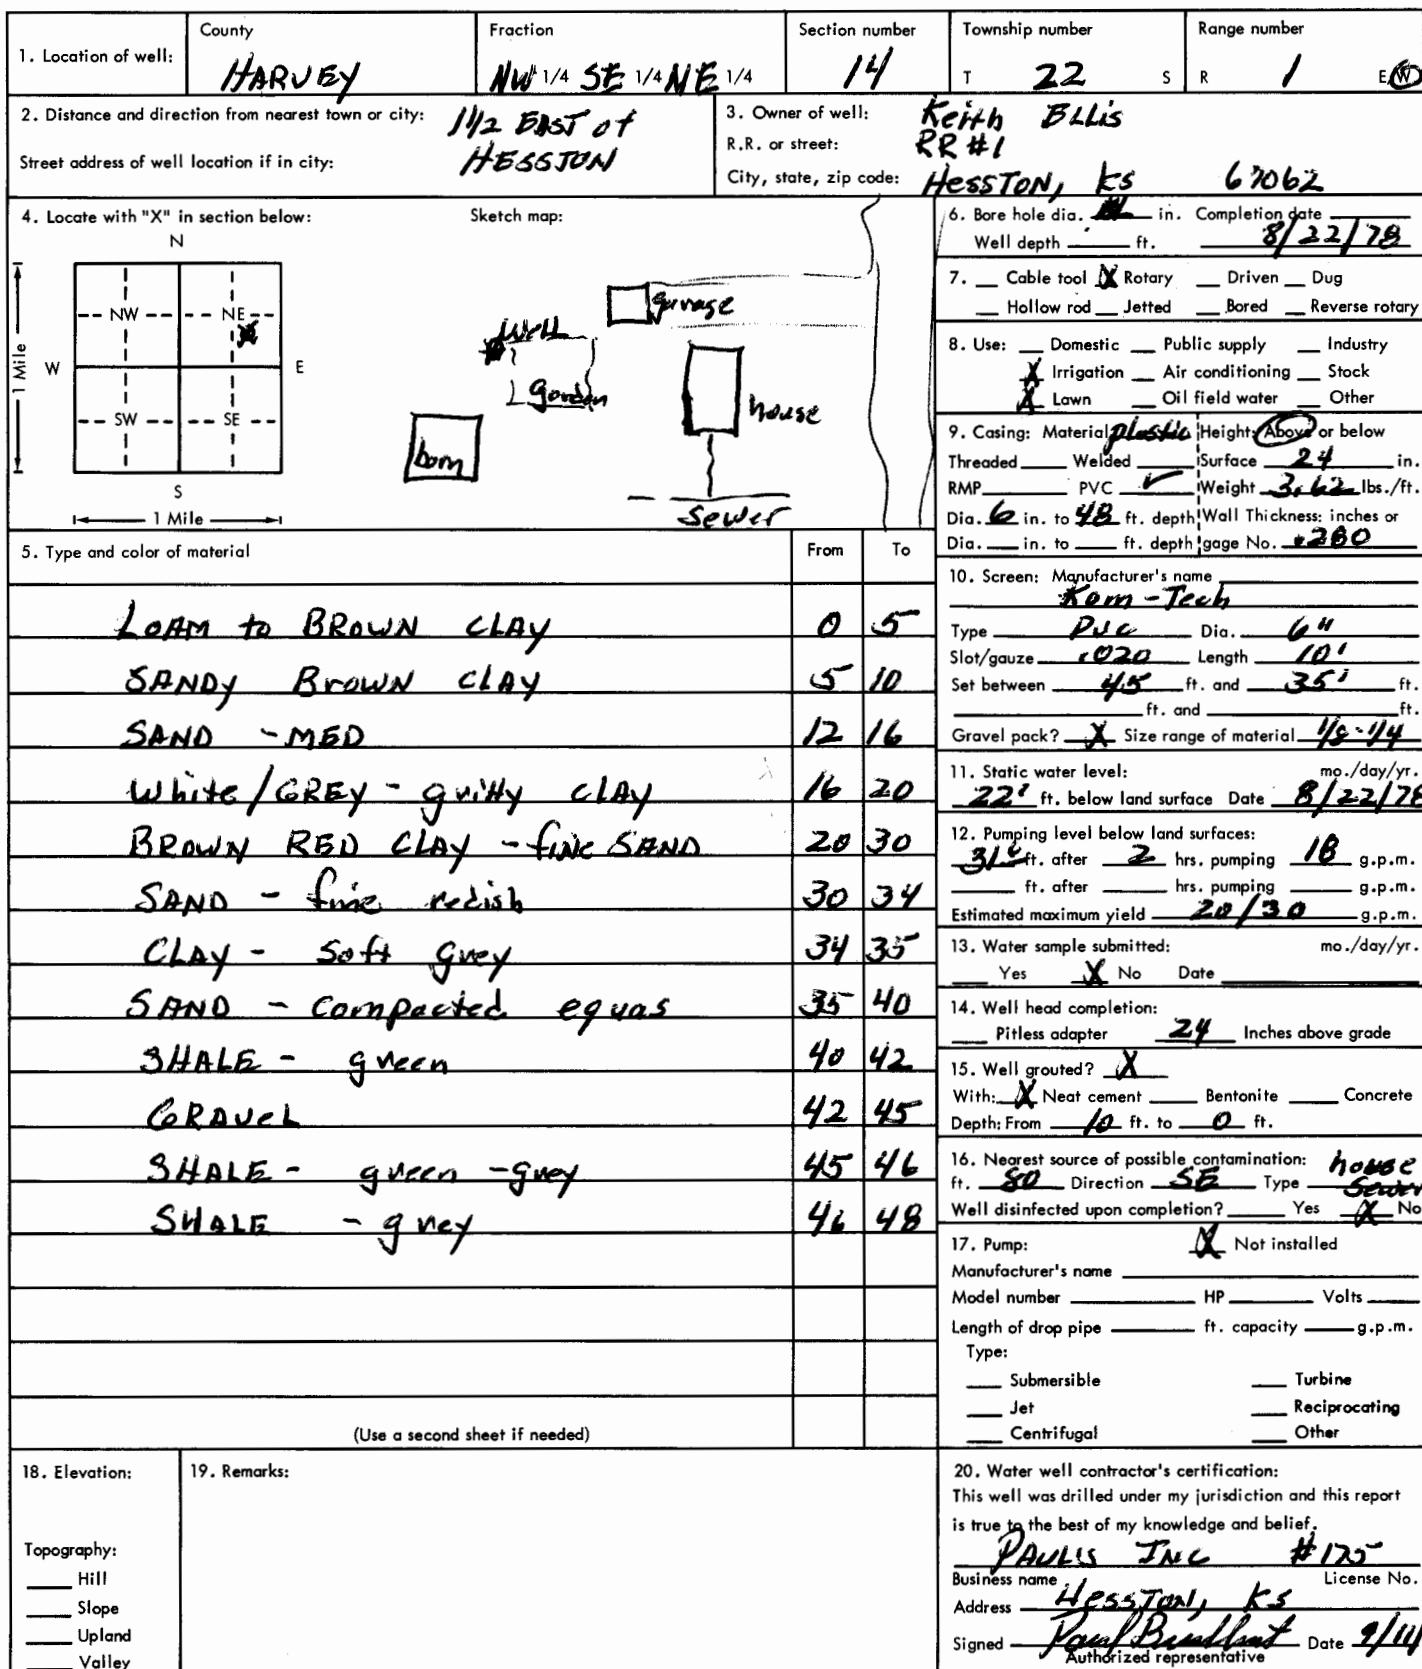 County Fraction Section number Township number Range number
1. Location of well: HARVEY NW 1/4 SE 1/4 NE 1/4 14 T 22 S R 1 E W
2. Distance and direction from nearest town or city: 1 1/2 EAST of
Street address of well location if in city: HESSTON
3. Owner of well: Keith Ellis
R.R. or street: RR #1
City, state, zip code: HESSTON, KS 67062
4. Locate with "X" in section below: Sketch map:
N
NW NE
W E
SW SE
S
1 Mile
1 Mile
garage
Well
gordon
house
barn
Sewer
6. Bore hole dia. in. Completion date
Well depth ft. 8/22/78
7. Cable tool X Rotary Driven Dug
Hollow rod Jetted Bored Reverse rotary
8. Use: Domestic Public supply Industry
X Irrigation Air conditioning Stock
X Lawn Oil field water Other
9. Casing: Material plastic Height: Above or below
Threaded Welded Surface 24 in.
RMP PVC ✓ Weight 3.62 lbs./ft.
Dia. 6 in. to 48 ft. depth Wall Thickness: inches or
Dia. in. to ft. depth gage No. .280
5. Type and color of material From To
LOAM to BROWN CLAY 0 5
SANDY Brown CLAY 5 10
SAND - MED 12 16
White/GREY - gritty CLAY 16 20
BROWN RED CLAY - fine SAND 20 30
SAND - fine redish 30 34
CLAY - Soft grey 34 35
SAND - compacted equas 35 40
SHALE - green 40 42
GRAVEL 42 45
SHALE - green - grey 45 46
SHALE - grey 46 48
(Use a second sheet if needed)
10. Screen: Manufacturer's name
Kom-Tech
Type PVC Dia. 6"
Slot/gauze .020 Length 10'
Set between 45 ft. and 35' ft.
ft. and ft.
Gravel pack? X Size range of material 1/8-1/4
11. Static water level: mo./day/yr.
22' ft. below land surface Date 8/22/78
12. Pumping level below land surfaces:
31' ft. after 2 hrs. pumping 18 g.p.m.
ft. after hrs. pumping g.p.m.
Estimated maximum yield 20/30 g.p.m.
13. Water sample submitted: mo./day/yr.
Yes X No Date
14. Well head completion:
Pitless adapter 24 Inches above grade
15. Well grouted? X
With: X Neat cement Bentonite Concrete
Depth: From 10 ft. to 0 ft.
16. Nearest source of possible contamination: house
ft. 80 Direction SE Type Sewer
Well disinfected upon completion? Yes X No
17. Pump: X Not installed
Manufacturer's name
Model number HP Volts
Length of drop pipe ft. capacity g.p.m.
Type:
Submersible Turbine
Jet Reciprocating
Centrifugal Other
18. Elevation: 19. Remarks:
Topography:
Hill
Slope
Upland
Valley
20. Water well contractor's certification:
This well was drilled under my jurisdiction and this report
is true to the best of my knowledge and belief.
PAULS INC #175
Business name License No.
Address Hesston, KS
Signed Paul Date 9/11/
Authorized representative